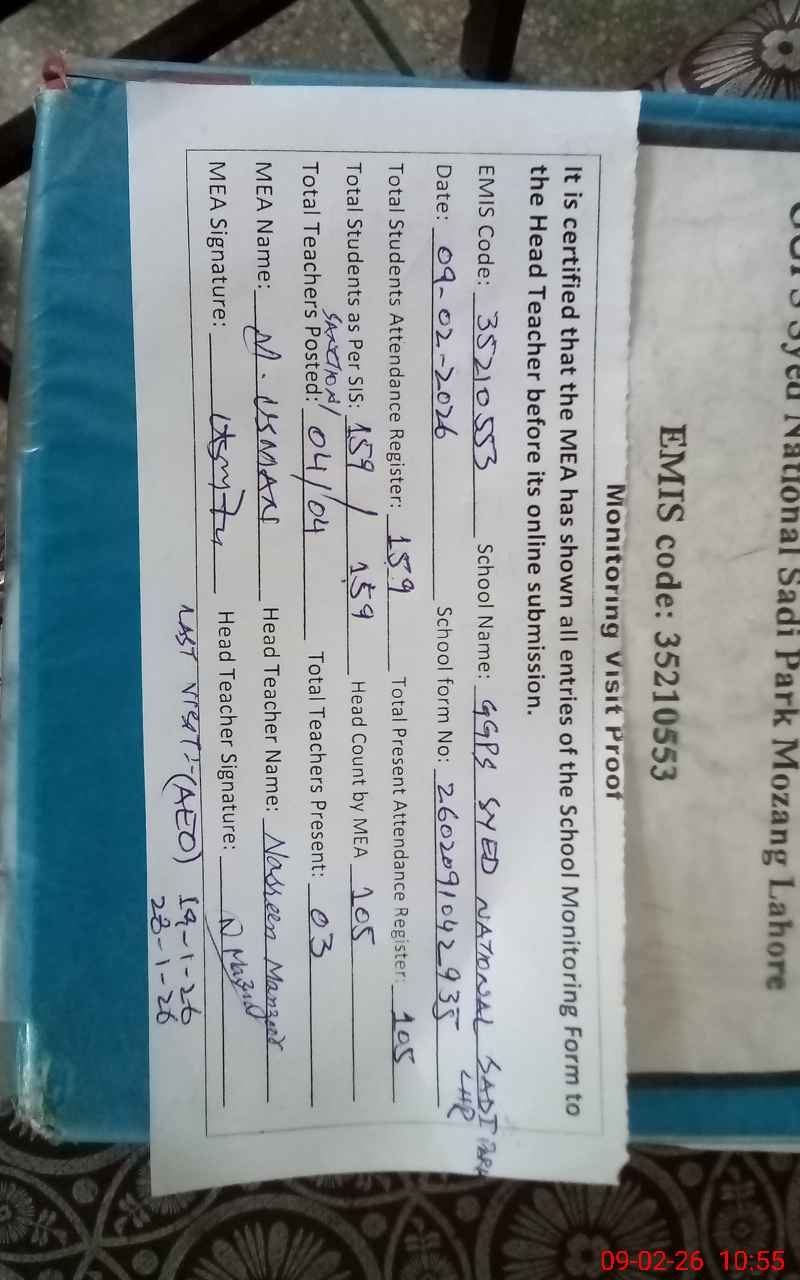 Syed National Sadi Park Mozang Lahore
EMIS code: 35210553
Monitoring Visit Proof
It is certified that the MEA has shown all entries of the School Monitoring Form to
the Head Teacher before its online submission.
EMIS Code: 35210553 School Name: GGPS SYED NATIONAL SADI PARK
LHR
Date: 09-02-2026 School form No: 2602091042935
Total Students Attendance Register: 159 Total Present Attendance Register: 105
Total Students as Per SIS: 159 / 159 Head Count by MEA 105
SANCTION/
Total Teachers Posted: 04/04 Total Teachers Present: 03
MEA Name: M. USMAN Head Teacher Name: Nasreen Manzoor
MEA Signature: Head Teacher Signature:
LAST VISIT:-(AEO) 19-1-26
28-1-26
09-02-26 10:55